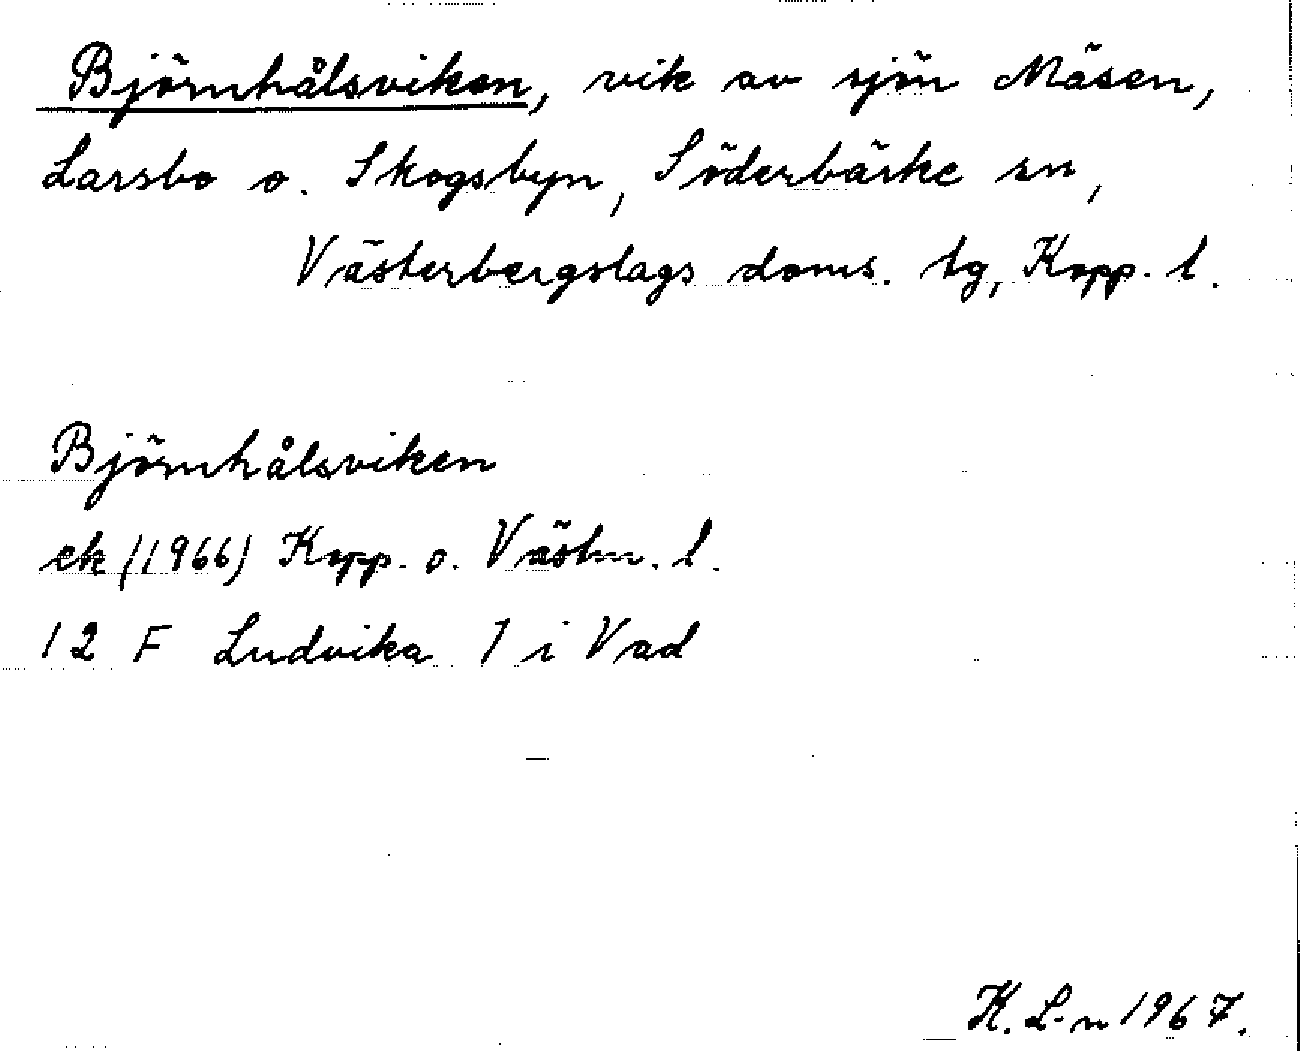 Björnhålsviken, vik av sjön Mäsen,
Larsbo o. Skogsbyn, Söderbärke sn,
Västerbergslags doms. tg, Kopp. l.
Björnhålsviken
ek (1966) Kopp. o. Västm. l.
12 F Ludvika 7 i Vad
K. L-n 1967.